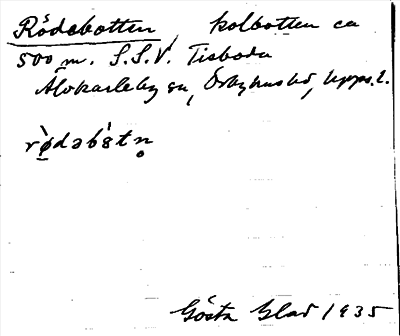 Rödebotten, kolbotten ca
500 m. S.S.V. Tisboda
Älvkarleby sn, Örbyhus hd, Upps. l.
rø̀dəbåtn̥
Gösta Glad 1935